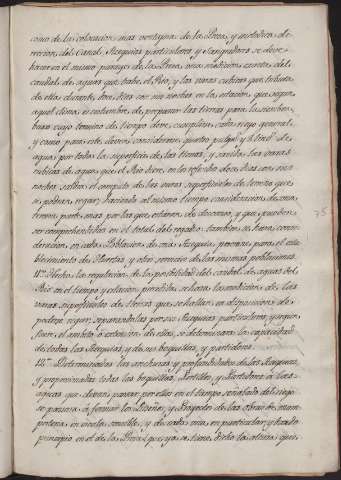 como de la colocacion mas ventajosa de la Presa, y metodica de-
recion del Canal, Azequias particulares y Sangradores se deve
hacer en el mismo parage de la Presa una medicion exacta del
caudal de aguas que trahe el Rio, y las varas cubicas que tributa
de ella durante dos dias con sus noches en la estacion que segun
aquel clima es costumbre de preparar las tierras para la siembra,
bajo cuyo termino de tiempo deve cumplirse cada riego general,
y como para este deven considerarse quatro pulgadas de
agua por toda la superficie de las tierras, y savidas las varas
cubicas de agua que el Rio tiene en los referidos dos dias con sus
noches saldra el computo de las varas superficiales de terreno que
se podran regar, haciendo al mismo tiempo consideracion de una
tercera parte mas por las que estaran de descanso, y que pueden
ser comprehendidas en el total del regadio: tambien se tiene consi-
deracion en cada Poblacion de una Azequia, para el esta-
blecimiento de Huertas y otro servicio de las mismas poblaciones.
11.º Hecha la regulacion de la posibilidad del caudal de aguas del
Rio en el tiempo y estacion prescrita se hara la medicion de las
varas superficiales de tierras que se hallan en disposicion de
poderse regar, separandolas por sus Azequias particulares, y segun
fuere el ambito o extension de ellas, se determinara la capacidad
de todas las Azequias, y de sus boquillas, y partidores.
12.º Determinadas las anchuras y profundidades de las Azequias,
y proporcionadas todas las boquillas, Portillos, y Partidores a las
aguas que devan pasar por ellos en el tiempo señalado del riego
se pasara a formar los Diseños, y Proyectos de las obras de mam-
posteria, en escala sencilla, y de cada una en particular, y dando
principio en el de la Presa, que ya se tiene dicho la altura que